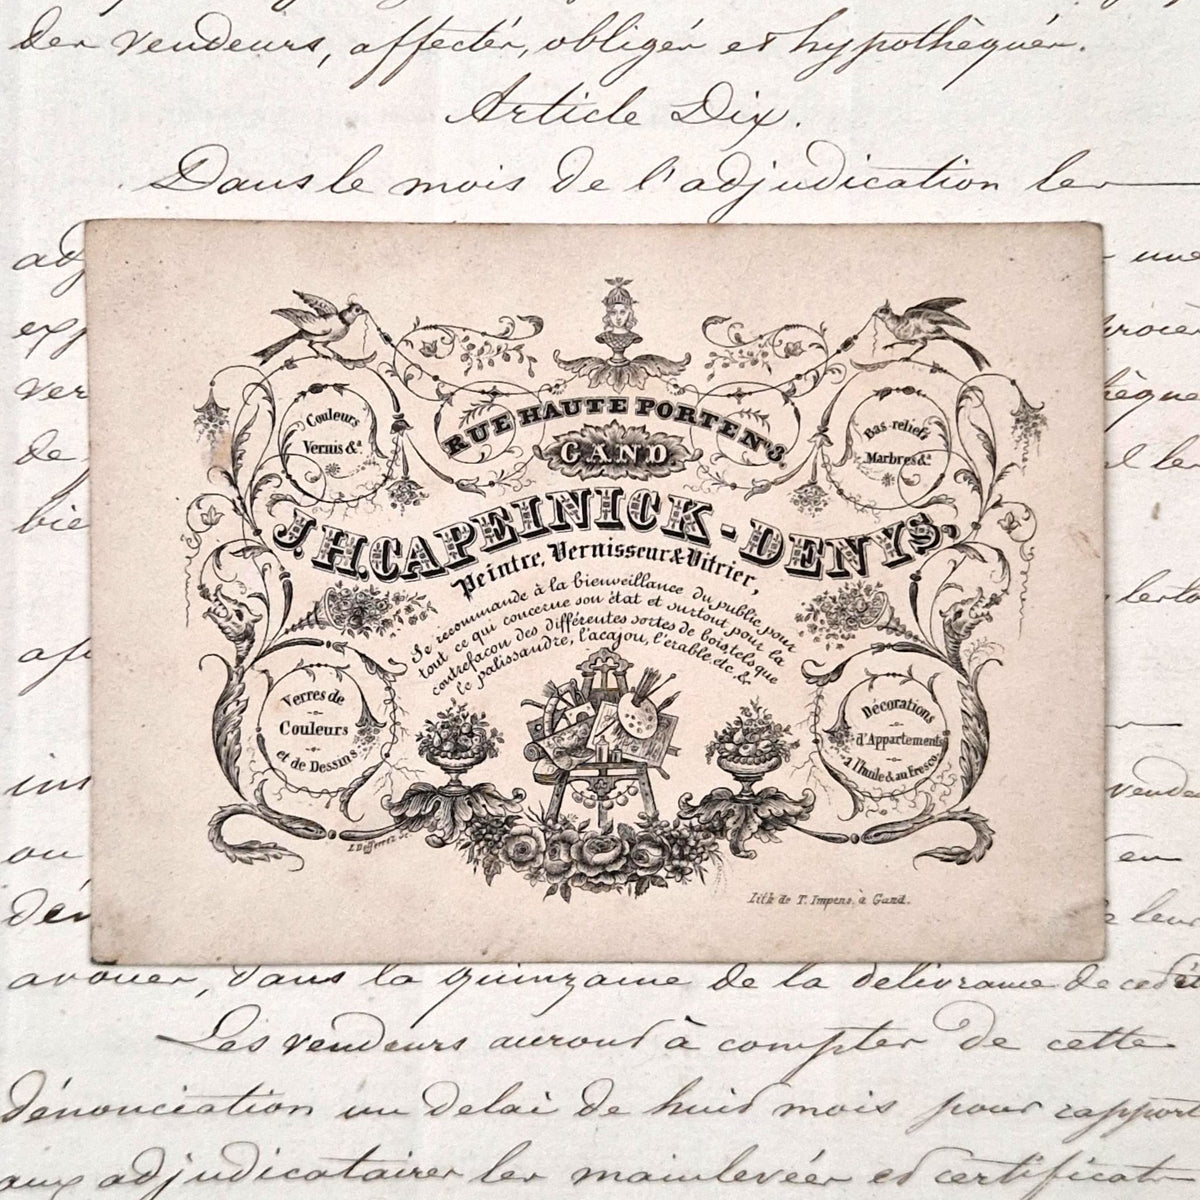 der vendeurs, affecter, obliger et hypothéquer.
Article Dix.
Dans le mois de l'adjudication les
RUE HAUTE PORTE N°3.
GAND
J.H. CAPEINICK-DENYS,
Peintre, Vernisseur & Vitrier,
Se recommande à la bienveillance du public pour
tout ce qui concerne son état et surtout pour la
contrefaçon des différentes sortes de bois tels que
le palissandre, l'acajou, l'érable etc. &.
Couleurs
Vernis &ª.
Bas-reliefs
Marbres &ª.
Verres de
Couleurs
et de Dessins
Décorations
d'Appartements
a l'huile & au Fresco.
Lith de T. Impens, à Gand.
avouer, dans la quinzaine de la délivrance de
Les vendeurs auront à compter de cette
dénonciation un délai de huit mois pour rapport
aux adjudicataires les mainlevées et certificats